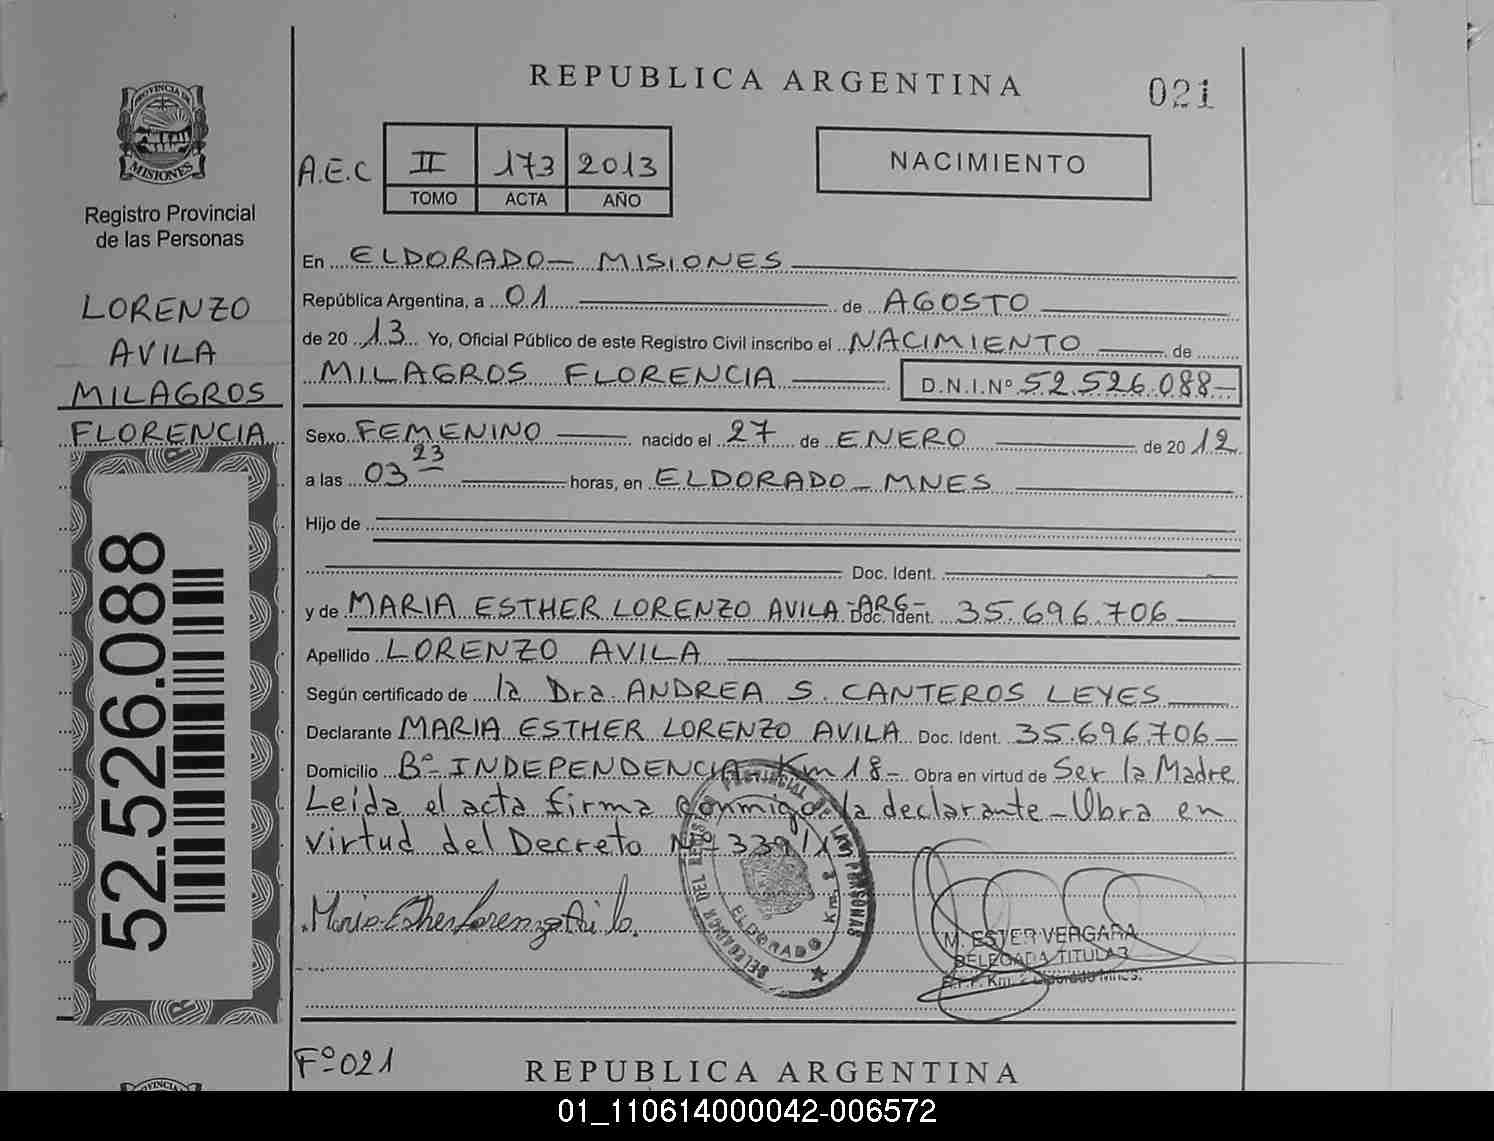 REPUBLICA ARGENTINA
021
PROVINCIA DE
MISIONES
Registro Provincial
de las Personas
LORENZO
AVILA
MILAGROS
FLORENCIA
52.526.088
A.E.C II 173 2013
TOMO ACTA AÑO
NACIMIENTO
En ELDORADO - MISIONES
República Argentina, a 01 de AGOSTO
de 20 13 Yo, Oficial Público de este Registro Civil inscribo el NACIMIENTO de
MILAGROS FLORENCIA D.N.I.Nº 52.526.088-
Sexo FEMENINO nacido el 27 de ENERO de 20 12
a las 03 23 horas, en ELDORADO - MNES
Hijo de
Doc. Ident.
y de MARIA ESTHER LORENZO AVILA -ARG- Doc. Ident. 35.696.706
Apellido LORENZO AVILA
Según certificado de la Dra. ANDREA S. CANTEROS LEYES
Declarante MARIA ESTHER LORENZO AVILA Doc. Ident. 35.696.706-
Domicilio Bº INDEPENDENCIA - Km 18 - Obra en virtud de Ser la Madre
Leída el acta firma conmigo la declarante - Obra en
virtud del Decreto Nº 339/1
Maria Esther Lorenzo Avila.
DELEGACION DEL REGISTRO PROVINCIAL DE LAS PERSONAS
ELDORADO Km. 2
M. ESTER VERGARA
DELEGADA TITULAR
R.P.P. Km. 2 Eldorado Mnes.
Fº 021
REPUBLICA ARGENTINA
PROVINCIA
01_110614000042-006572